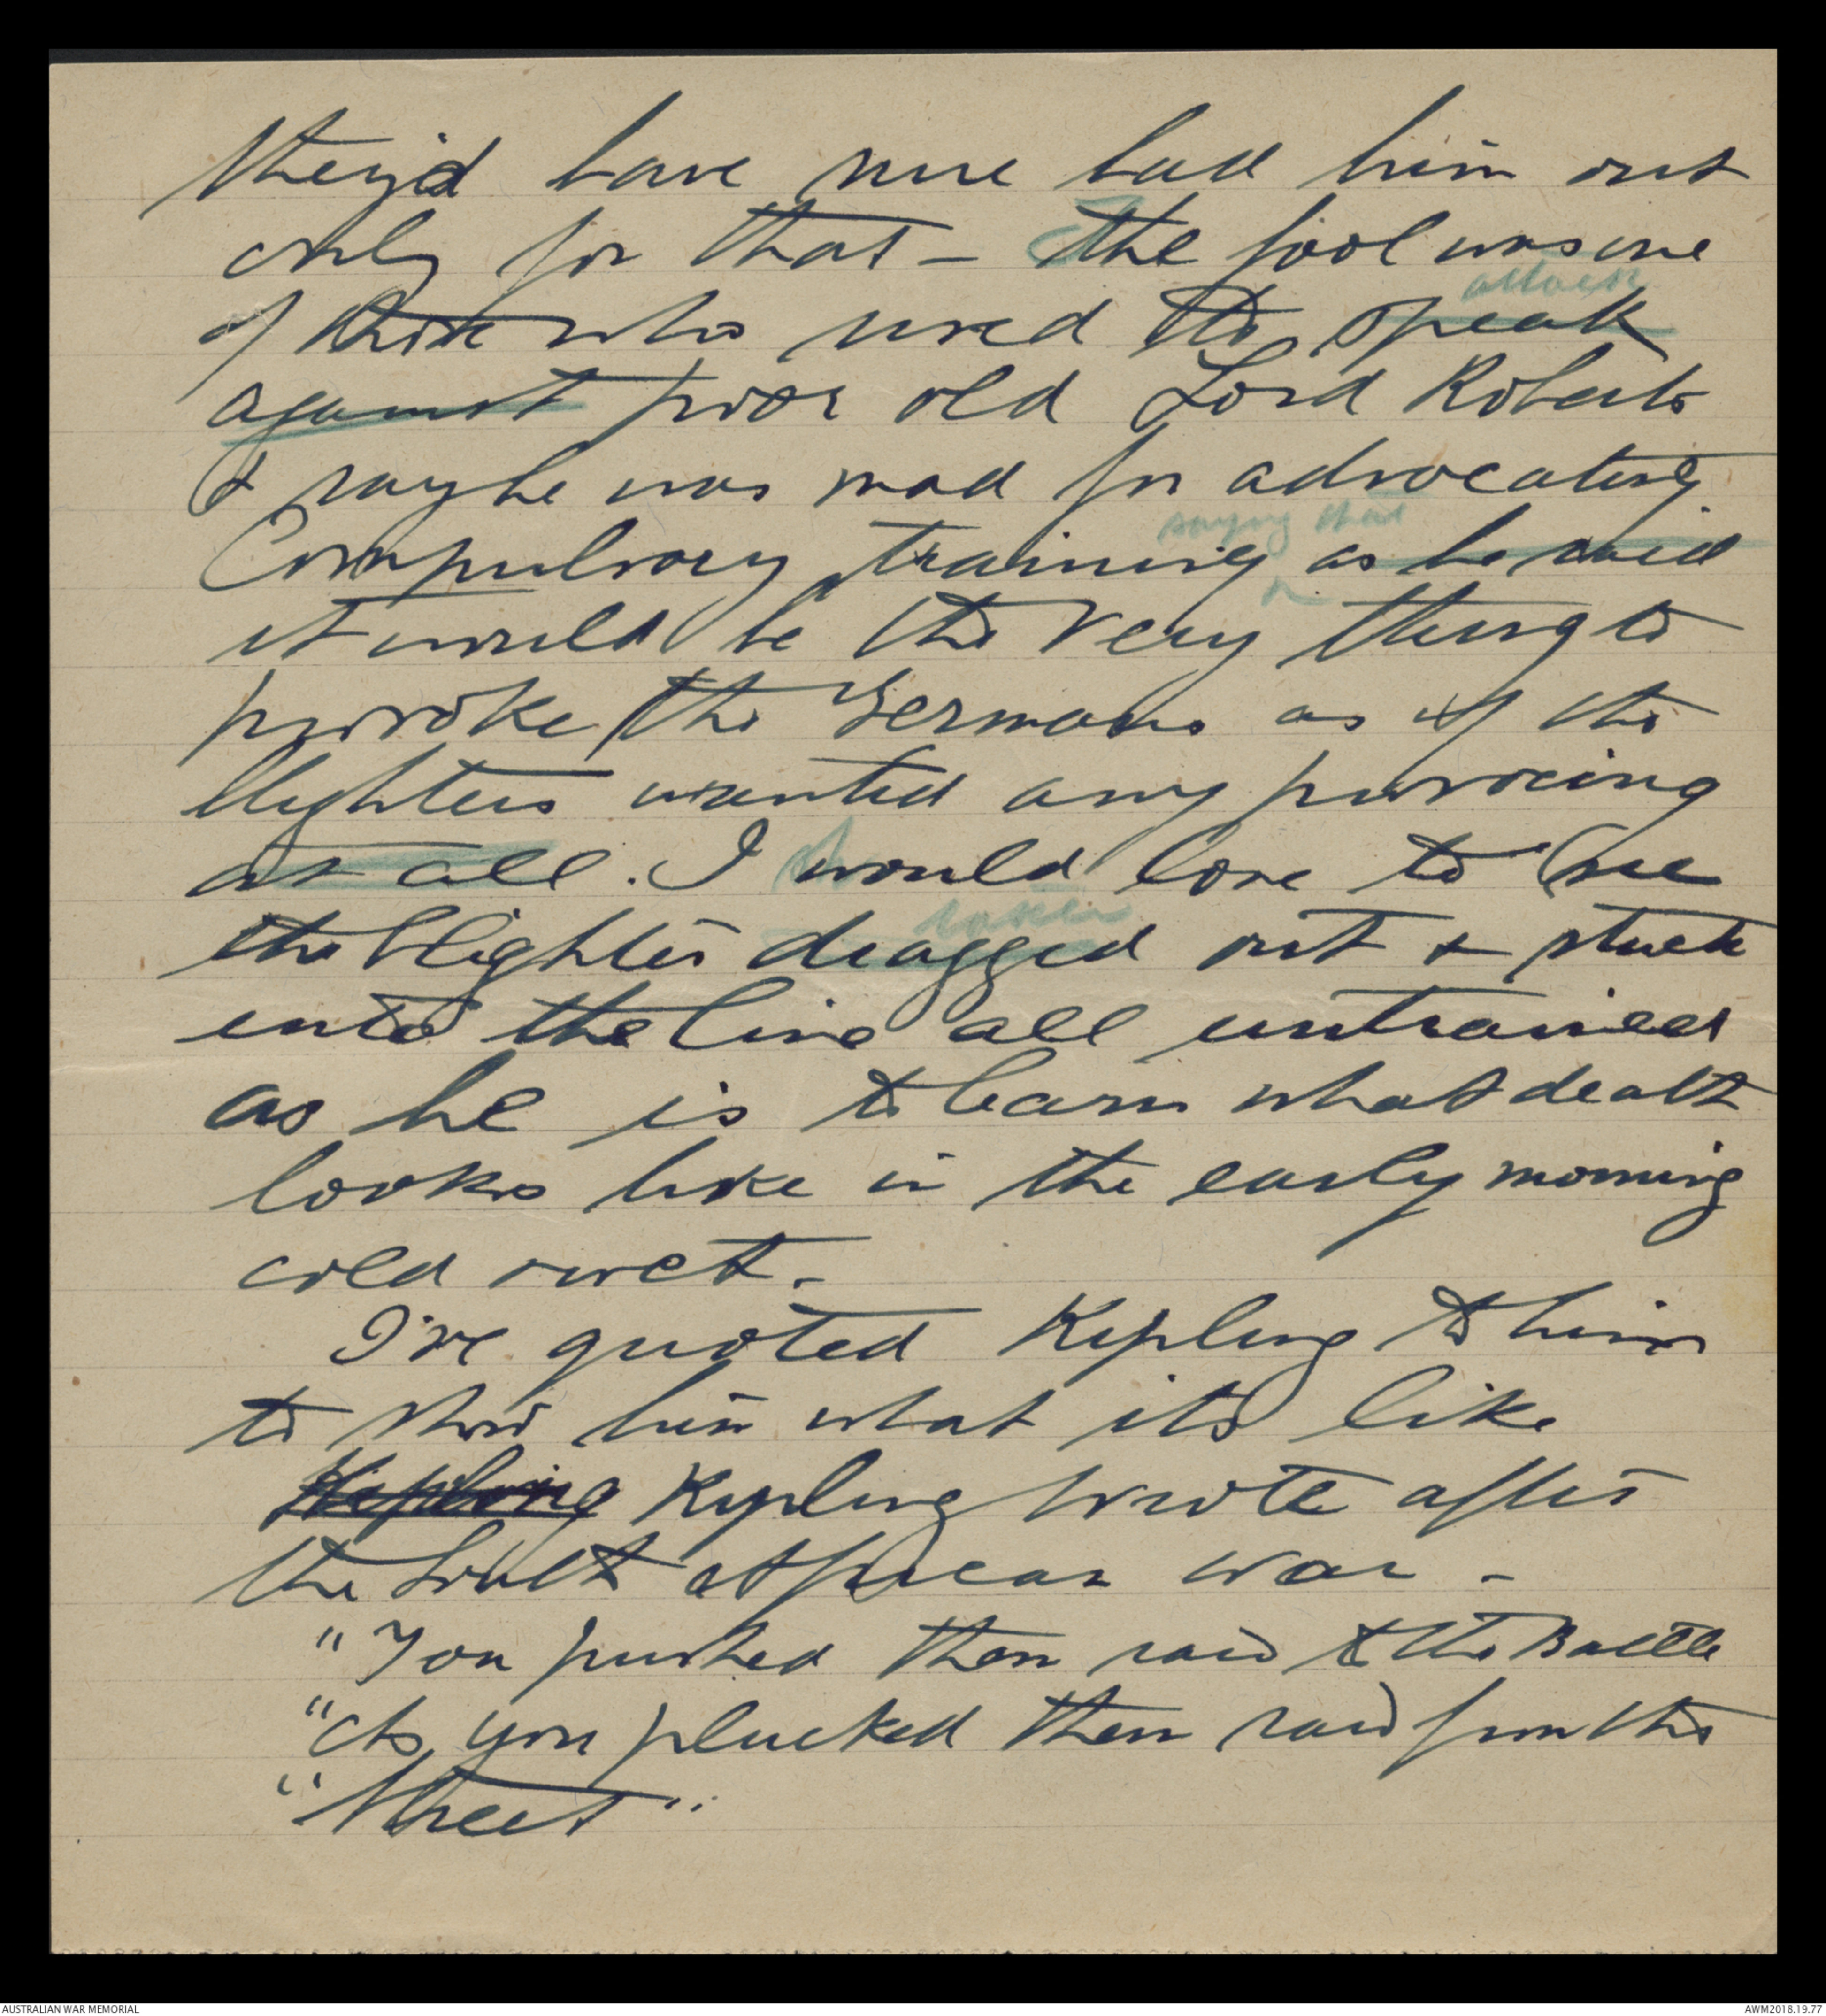 they'd have sure had him out
only for that - The fool was one
of those who used to speak attack
against poor old Lord Roberts
& say he was mad for advocating
Compulsory training as he said saying that
it would be the very thing to
provoke the Germans as if the
blighters wanted any provoking
at all. I would love to see
the blighter dragged taken out & stuck
into the line all untrained
as he is to learn what death
looks like in the early morning
cold & wet.
I've quoted Kipling to him
to show him what its like
Kipling Kipling wrote after
the South African war -
"You pushed them raw to the Battle
"As you plucked them raw from the
"Street"
AUSTRALIAN WAR MEMORIAL
AWM2018.19.77